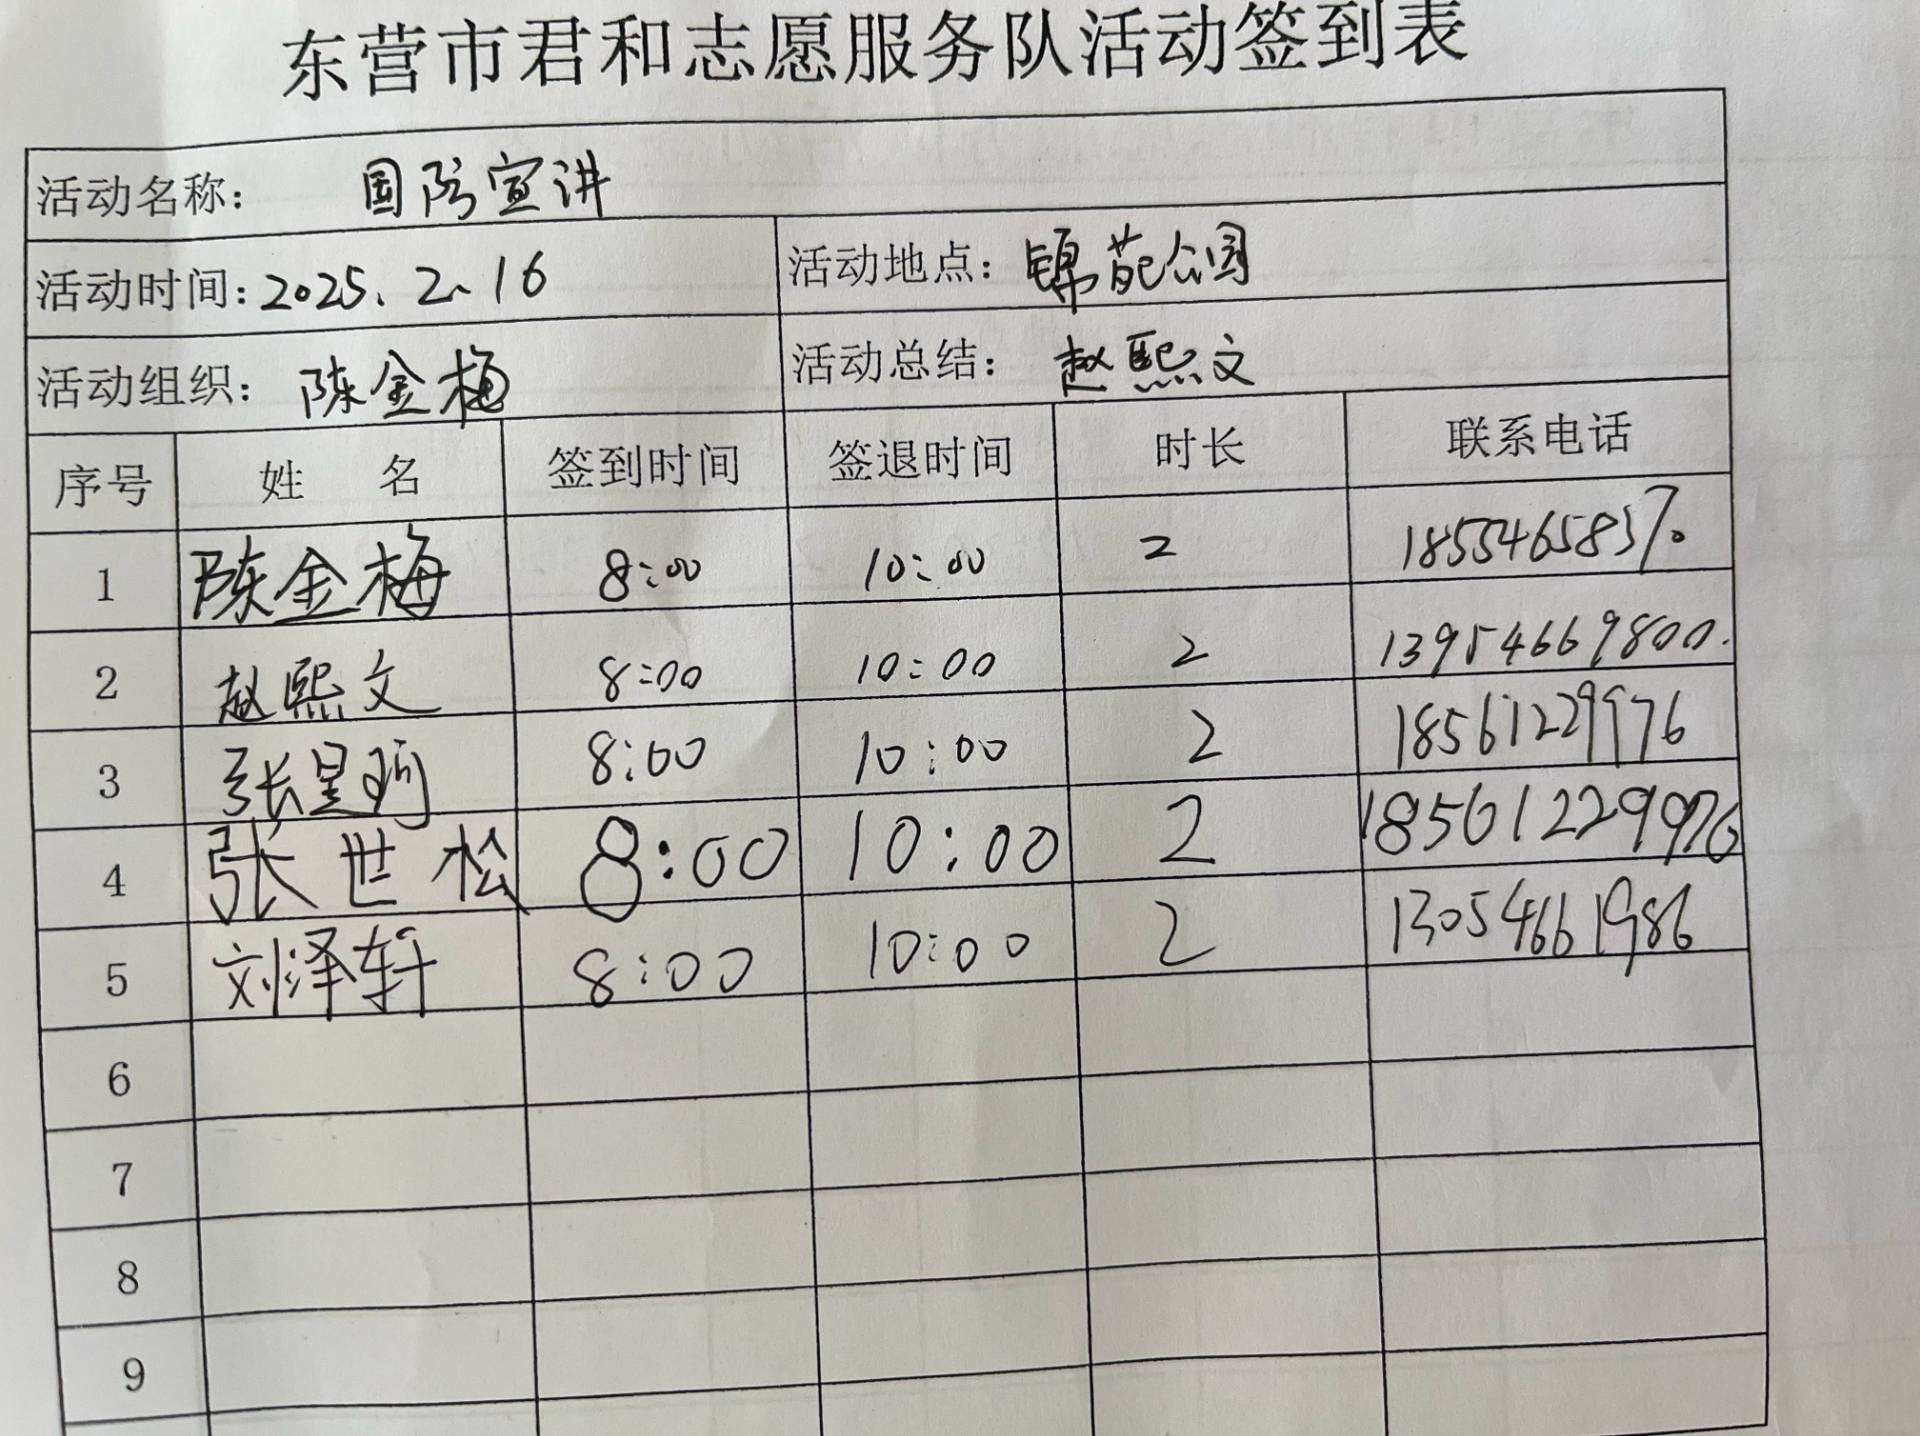 东营市君和志愿服务队活动签到表
活动名称： 国防宣讲
活动时间：2025.2.16 活动地点：锦苑公园
活动组织：陈金梅 活动总结：赵熙文
序号 姓 名 签到时间 签退时间 时长 联系电话
1 陈金梅 8:00 10:00 2
2 赵熙文 8:00 10:00 2 13954669800.
3 张星 8:00 10:00 2 18561229976
4 张世松 8:00 10:00 2 18561229976
5 刘泽轩 8:00 10:00 2 13054661986
6
7
8
9